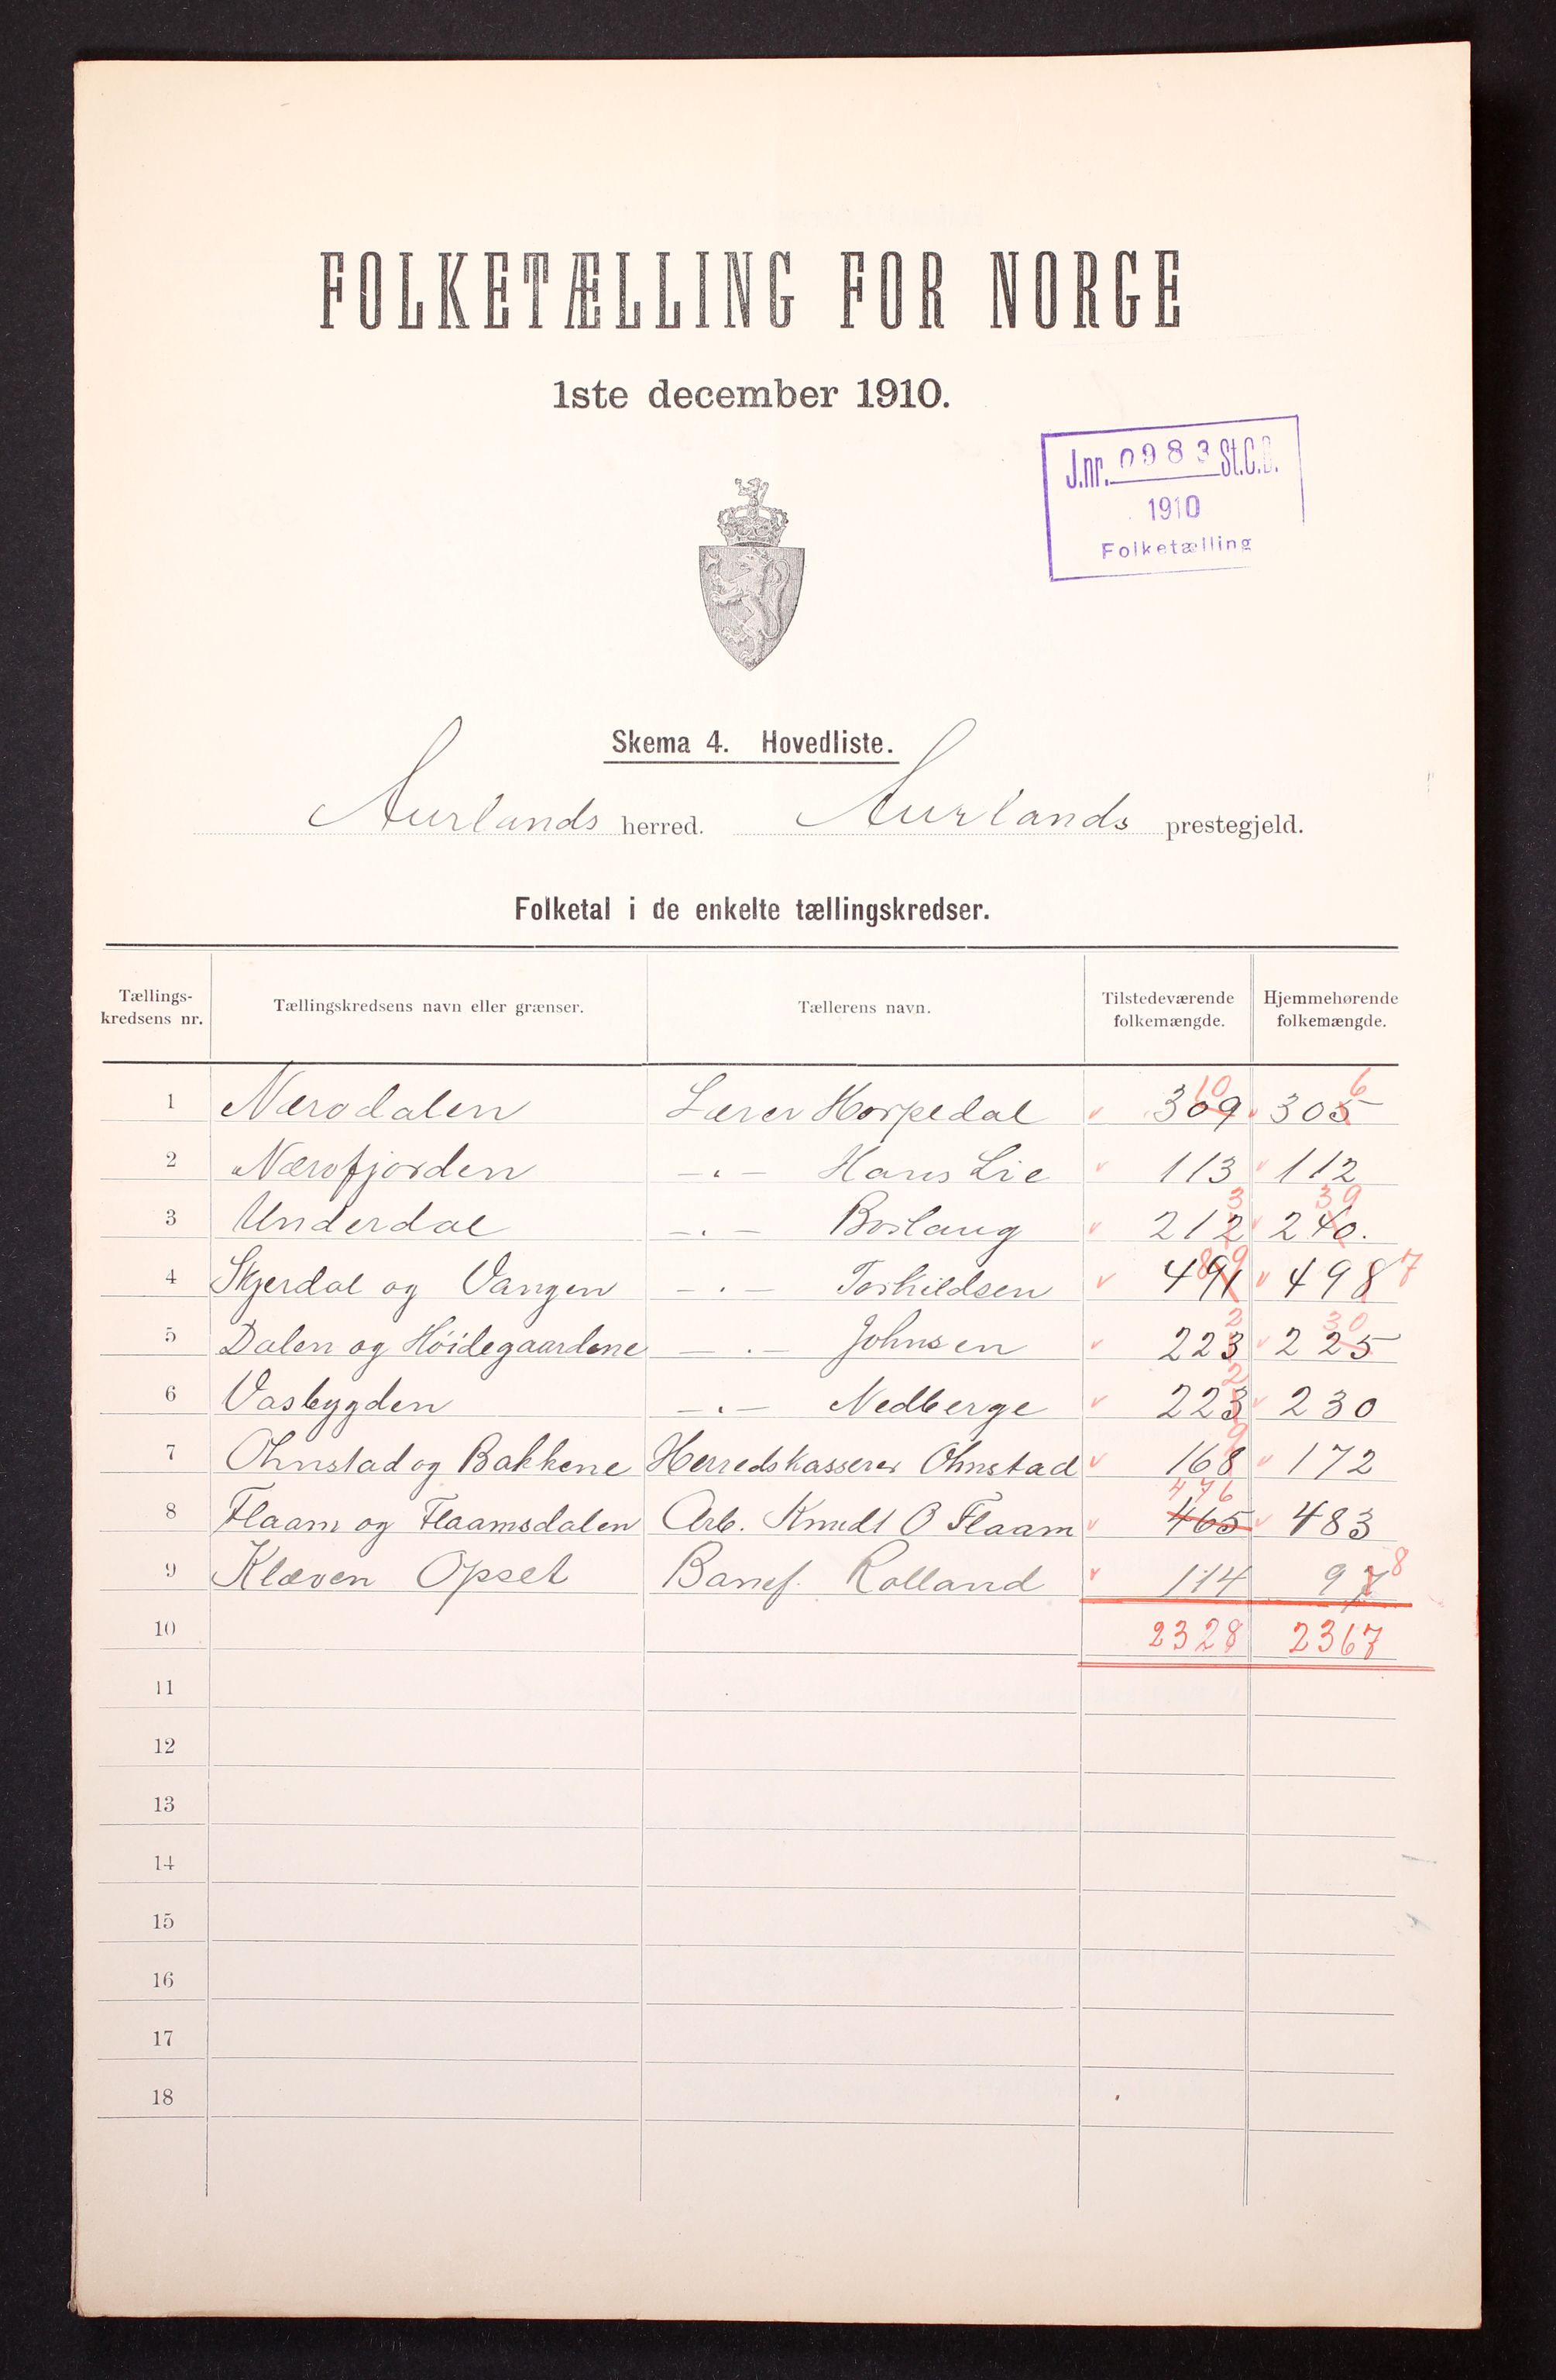 FOLKETÆLLING FOR NORGE
1ste december 1910.
J.nr. 0983 St.C.B.
1910
Folketælling
Skema 4. Hovedliste.
Aurlands herred. Aurlands prestegjeld.
Folketal i de enkelte tællingskredser.
Tællings-kredsens nr. Tællingskredsens navn eller grænser. Tællerens navn. Tilstedeværende folkemængde. Hjemmehørende folkemængde.
10 6
1 Nærødalen Lærer Horpedal v 309 v 305
2 Nærøfjorden -"- Hans Lie v 113 v 112
3 39
3 Underdal -"- Borlaug v 212 v 240.
89 7
4 Skjerdal og Vangen -"- Torkildsen v 491 v 498
2 30
5 Dalen og Höidegaardene -"- Johnsen v 223 v 225
2
6 Vasbygden -"- Nedberge v 223 v 230
9
7 Ohnstad og Bakkene Herredskasserer Ohnstad v 168 v 172
476
8 Flaam og Flaamsdalen Arb. Knudt O Flaam v 465 v 483
8
9 Klæven Opset Banef. Rolland v 114 97
10 2328 2367
11
12
13
14
15
16
17
18